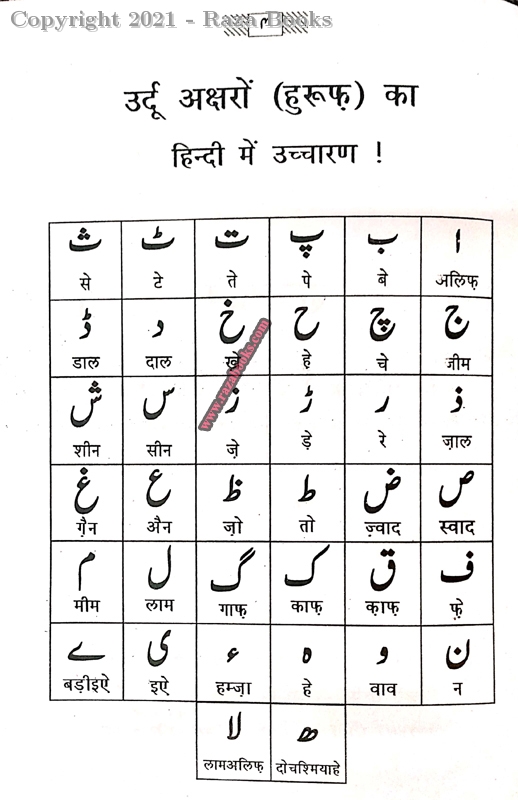 Copyright 2021 - Raza Books
٣
उर्दू अक्षरों (हुरूफ़) का
हिन्दी में उच्चारण !
ا ب پ ت ٹ ث
अलिफ़ बे पे ते टे से
ج چ ح خ د ڈ
जीम चे हे़ खे़ दाल डाल
ذ ر ڑ ز س ش
ज़ाल रे ड़े ज़े सीन शीन
www.razabooks.com
ص ض ط ظ ع غ
स्वाद ज़्वाद तो ज़ो अै़न गै़न
ف ق ک گ ل م
फ़े क़ाफ़ काफ़ गाफ़ लाम मीम
ن و ہ ء ی ے
न वाव हे हम्ज़ा इऐ बड़ीइऐ
ھ لا
दोचश्मियाहे लामअलिफ़